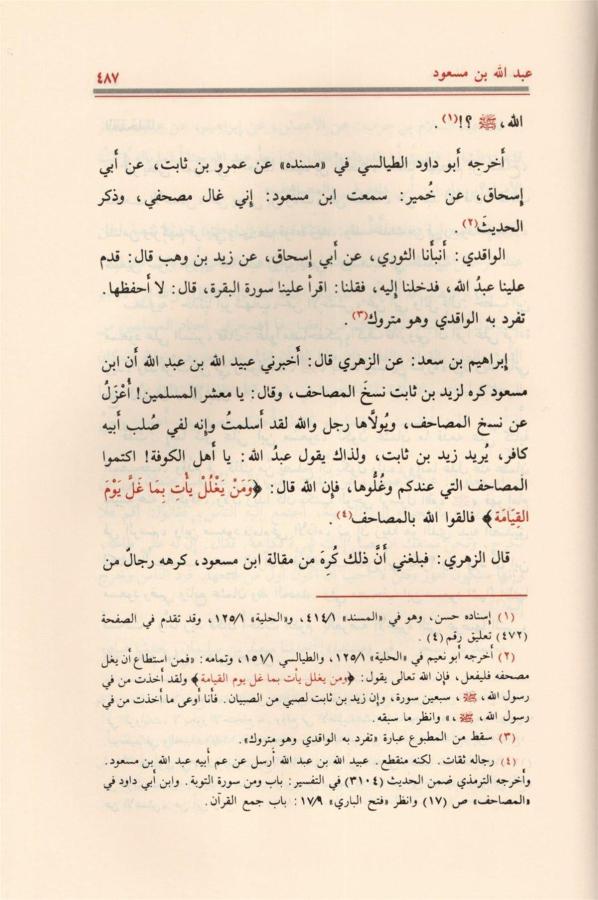 عبد الله بن مسعود ٤٨٧
الله، ﷺ ؟!(١) .
أخرجه أبو داود الطيالسي في «مسنده» عن عمرو بن ثابت، عن أبي
إسحاق، عن خُمير: سمعت ابن مسعود: إني غال مصحفي، وذكر
الحديثَ(٢) .
الواقدي: أنبأنا الثوري، عن أبي إسحاق، عن زيد بن وهب قال: قدم
علينا عبدُ الله، فدخلنا إليه، فقلنا: اقرأ علينا سورة البقرة، قال: لا أحفظها.
تفرد به الواقدي وهو متروك(٣).
إبراهيم بن سعد: عن الزهري قال: أخبرني عبيد الله بن عبد الله أن ابن
مسعود كره لزيد بن ثابت نسخَ المصاحف، وقال: يا معشر المسلمين! أُعْزَلُ
عن نسخ المصاحف، ويُولَّاها رجل والله لقد أسلمتُ وإنه لفي صُلب أبيه
كافر، يُريد زيد بن ثابت، ولذاك يقول عبدُ الله: يا أهل الكوفة! اكتموا
المصاحف التي عندكم وغُلُّوها، فإن الله قال: ﴿وَمَنْ يَغْلُلْ يأْتِ بِمَا غَلَّ يَوْمَ
القِيَامَة﴾ فالقوا الله بالمصاحف(٤).
قال الزهري: فبلغني أنَّ ذلك كُرِهَ من مقالة ابن مسعود، كرهه رجالٌ من
(١) إسناده حسن، وهو في «المسند» ٤١٤/١، و«الحلية» ١٢٥/١، وقد تقدم في الصفحة
(٤٧٢) تعليق رقم (٤) .
(٢) أخرجه أبو نعيم في «الحلية» ١٢٥/١، والطيالسي ١٥١/١، وتمامه: «فمن استطاع أن يغل
مصحفه فليفعل، فإن الله تعالى يقول: ﴿ومن يغلل يأت بما غل يوم القيامة﴾ ولقد أخذت من في
رسول الله، ﷺ، سبعين سورة، وإن زيد بن ثابت لصبي من الصبيان. فأنا أوعى ما أخذت من في
رسول الله، ﷺ ،» وانظر ما سبقه.
(٣) سقط من المطبوع عبارة «تفرد به الواقدي وهو متروك».
(٤) رجاله ثقات. لكنه منقطع. عبيد الله بن عبد الله أرسل عن عم أبيه عبد الله بن مسعود.
وأخرجه الترمذي ضمن الحديث (٣١٠٤) في التفسير: باب ومن سورة التوبة. وابن أبي داود في
«المصاحف» ص (١٧) وانظر «فتح الباري» ١٧/٩: باب جمع القرآن.